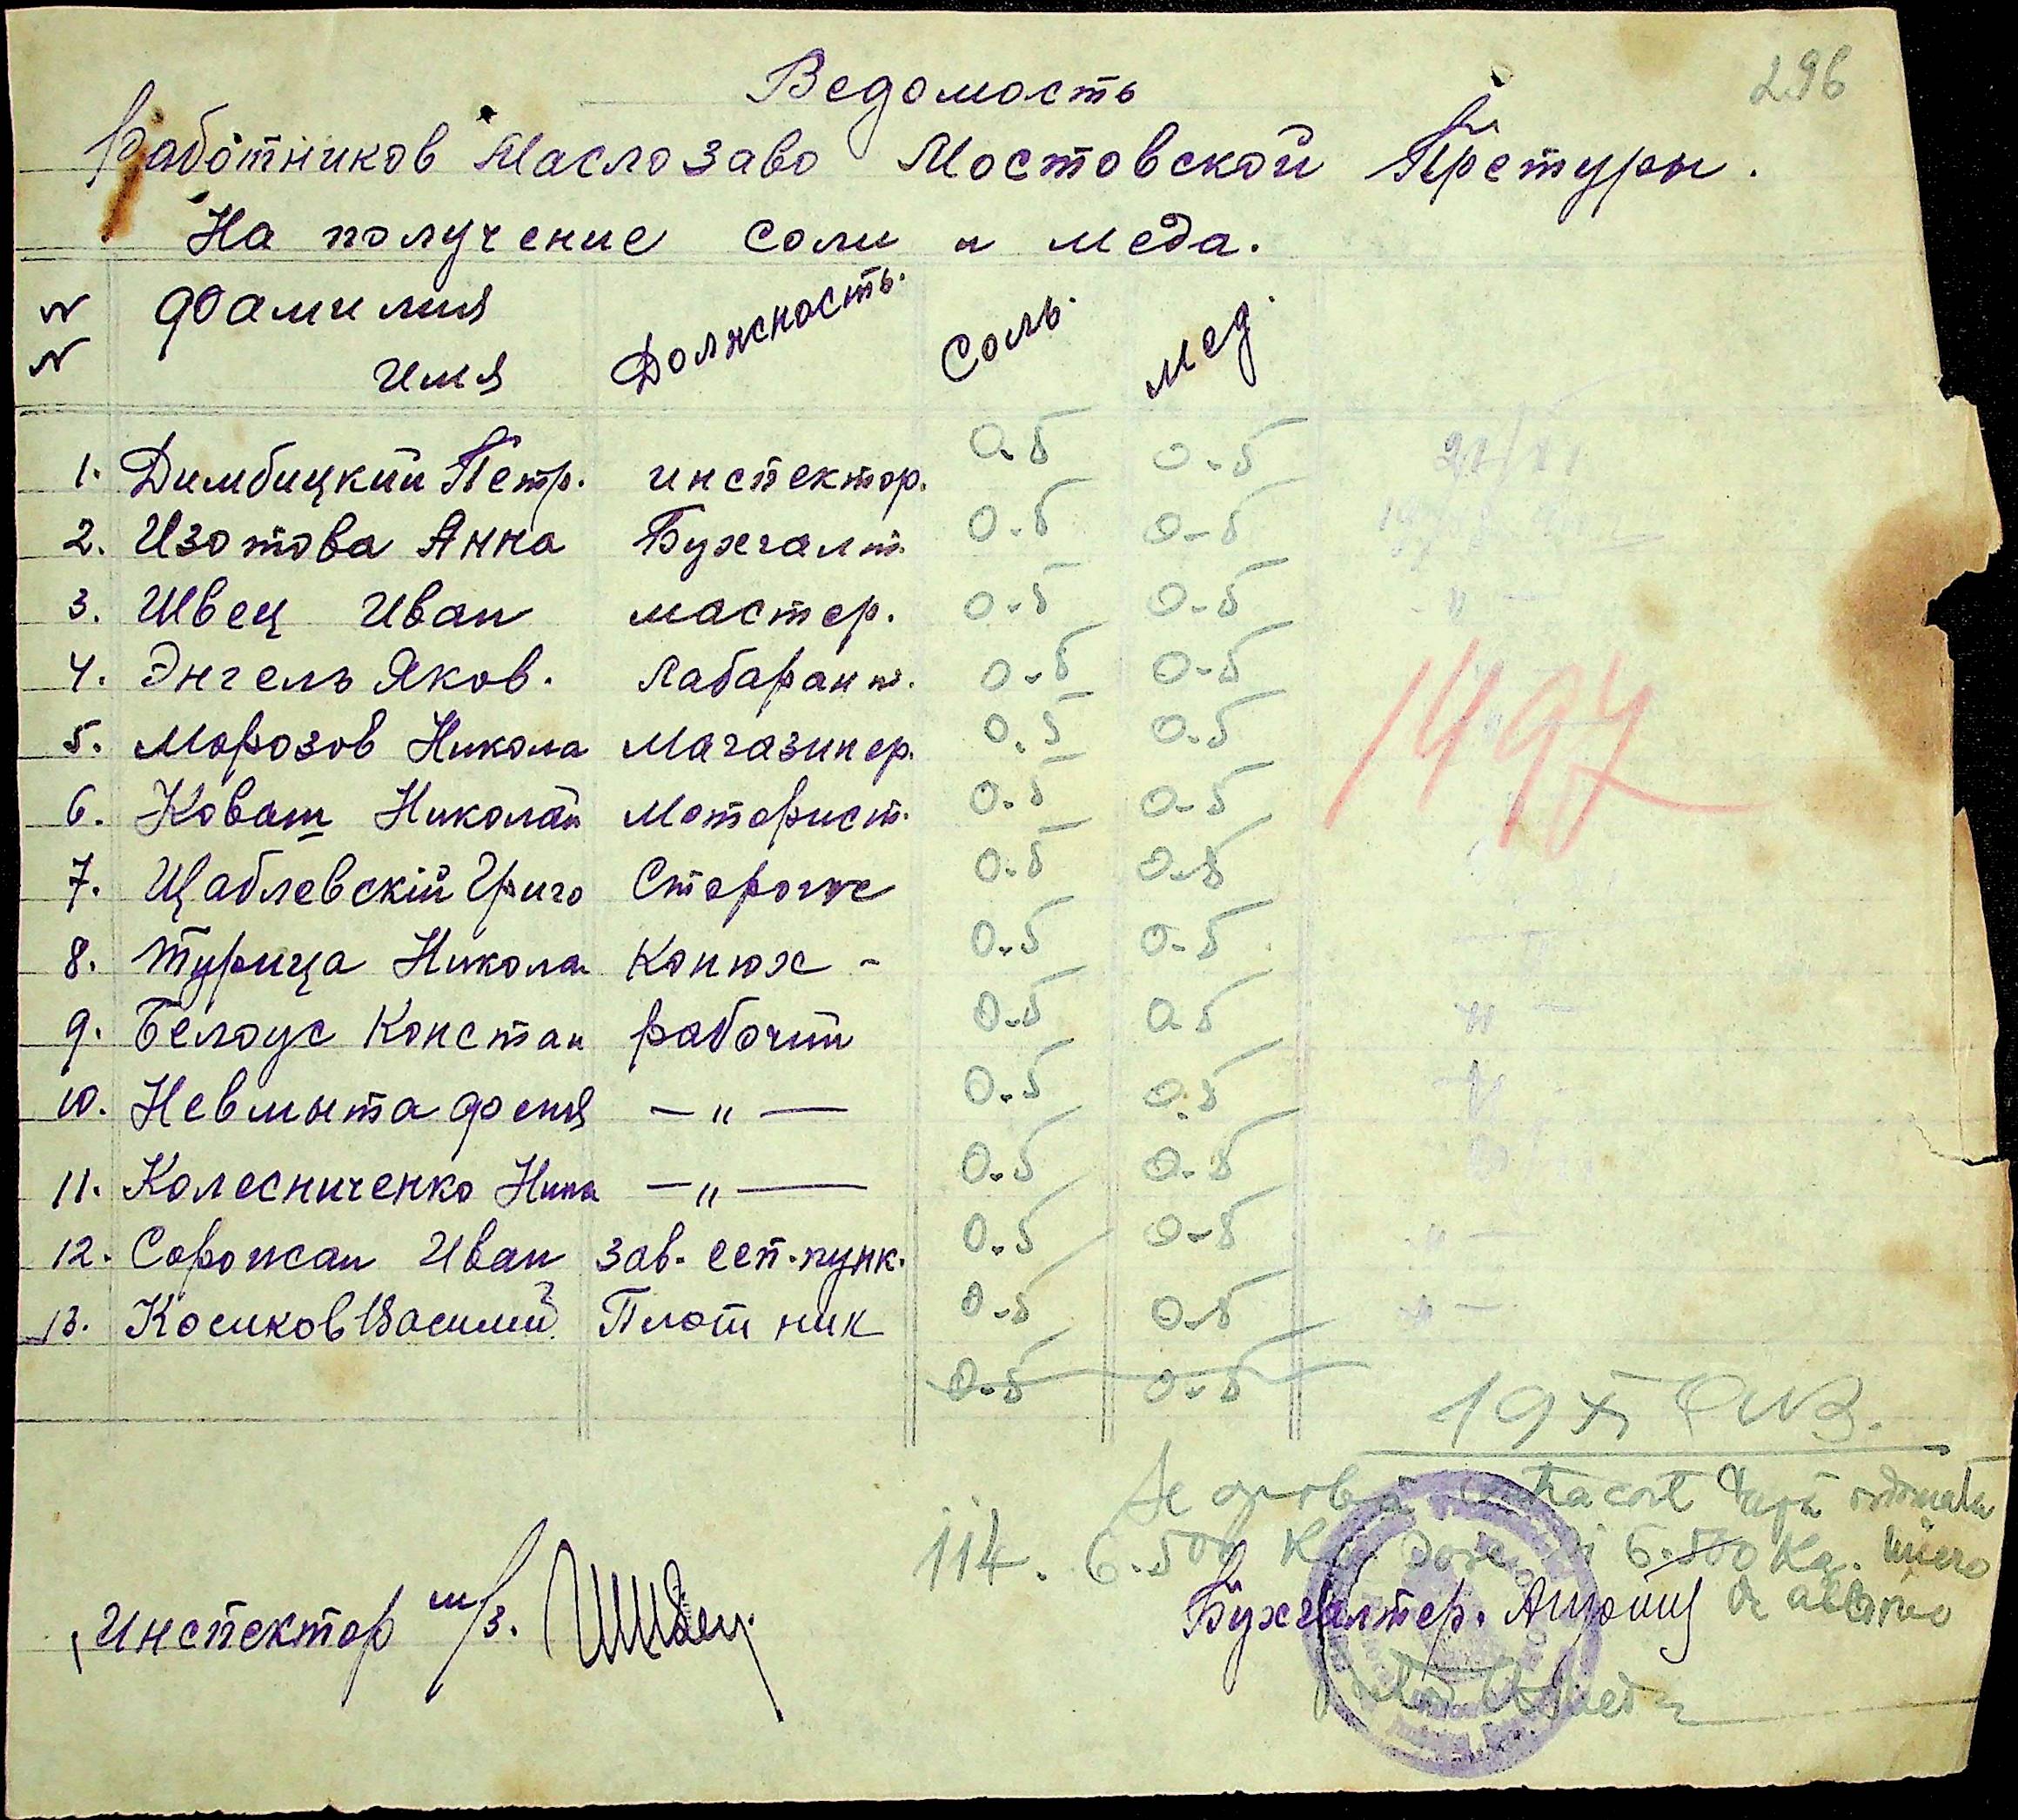 296
Ведомость
Работников Маслозаво Мостовской Претуры.
На получение соли и меда.
N N Фамилия Имя Должность. Соль. мед.
1. Димбицкий Петр. инспектор. 0.5 0-5
2. Изотова Анна Бухгалт. 0.5 0-5
3. Швец Иван мастер. 0-5 0-5
4. Энгель Яков. Лабарант. 0-5 0-5
5. Морозов Никола Магазинер. 0.5 0.5
6. Коваш Николай Моторист. 0.5 0-5
7. Щаблевскій Григо Стороже 0.5 0.5
8. Турица Никола Конюх - 0.5 0-5
9. Белоус Констан рабочий 0.5 0.5
10. Невмыта Феня — " — 0.5 0.5
11. Колесниченко Нина — " — 0.5 0.5
12. Сорожан Иван Зав. сеп. пунк. 0.5 0-5
13. Косиков Василий Плотник 0-5 0.5
0.5 0.5
1497
19
Se aprobă contra cost după
114. 6.500 Kg. sare și 6.500 Kg. miere
de albine
Инспектор м/з. Швец.
Бухгалтер.